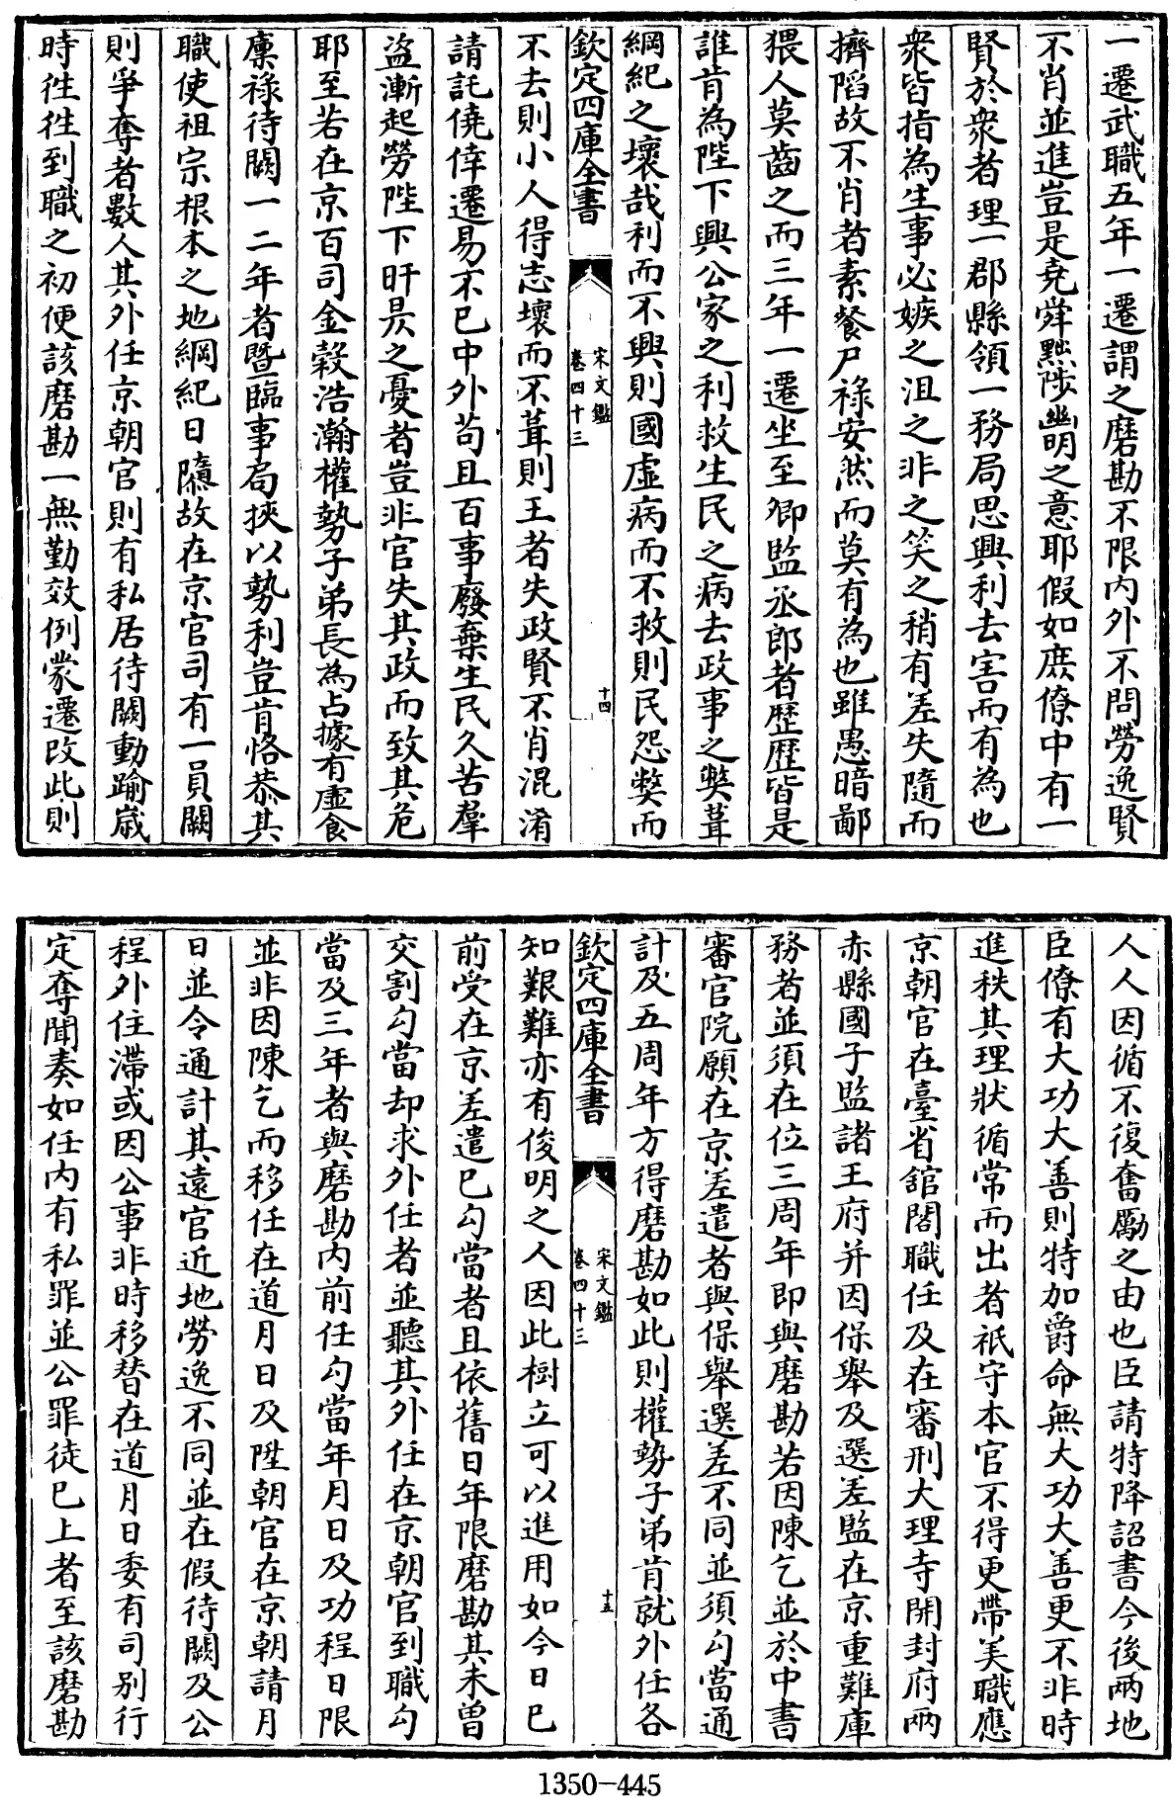 一遷武職五年一遷謂之磨勘不限内外不問勞逸賢
不肖並進豈是堯舜黜陟幽明之意耶假如庶僚中有一
賢於衆者理一郡縣領一務局思興利去害而有為也
衆皆指為生事必嫉之沮之非之笑之稍有差失隨而
擠陷故不肖者素餐尸祿安然而莫有為也雖愚暗鄙
猥人莫齒之而三年一遷坐至卿監丞郎者歷歷皆是
誰肯為陛下興公家之利救生民之病去政事之獘葺
綱紀之壞哉利而不興則國虛病而不救則民怨獘而
欽定四庫全書
宋文鑑
卷四十三
十四
不去則小人得志壞而不葺則王者失政賢不肖混淆
請託僥倖遷易不已中外苟且百事廢棄生民久苦羣
盗漸起勞陛下旰昃之憂者豈非官失其政而致其危
耶至若在京百司金榖浩瀚權勢子弟長為占據有虛食
廩祿待闕一二年者暨臨事局挾以勢利豈肯恪恭其
職使祖宗根本之地綱紀日隳故在京官司有一員闕
則爭奪者數人其外任京朝官則有私居待闕動踰嵗
時徃徃到職之初便該磨勘一無勤效例蒙遷改此則
人人因循不復奮勵之由也臣請特降詔書今後兩地
臣僚有大功大善則特加爵命無大功大善更不非時
進秩其理狀循常而出者祇守本官不得更帶美職應
京朝官在臺省館閣職任及在審刑大理寺開封府兩
赤縣國子監諸王府并因保舉及選差監在京重難庫
務者並須在位三周年即與磨勘若因陳乞並於中書
審官院願在京差遣者與保舉選差不同並須勾當通
計及五周年方得磨勘如此則權勢子弟肯就外任各
欽定四庫全書
宋文鑑
卷四十三
十五
知艱難亦有俊明之人因此樹立可以進用如今日已
前受在京差遣已勾當者且依舊日年限磨勘其未曾
交割勾當却求外任者並聽其外任在京朝官到職勾
當及三年者與磨勘内前任勾當年月日及功程日限
並非因陳乞而移任在道月日及陞朝官在京朝請月
日並令通計其遠官近地勞逸不同並在假待闕及公
程外住滯或因公事非時移替在道月日委有司别行
定奪聞奏如任内有私罪並公罪徒已上者至該磨勘
1350-445